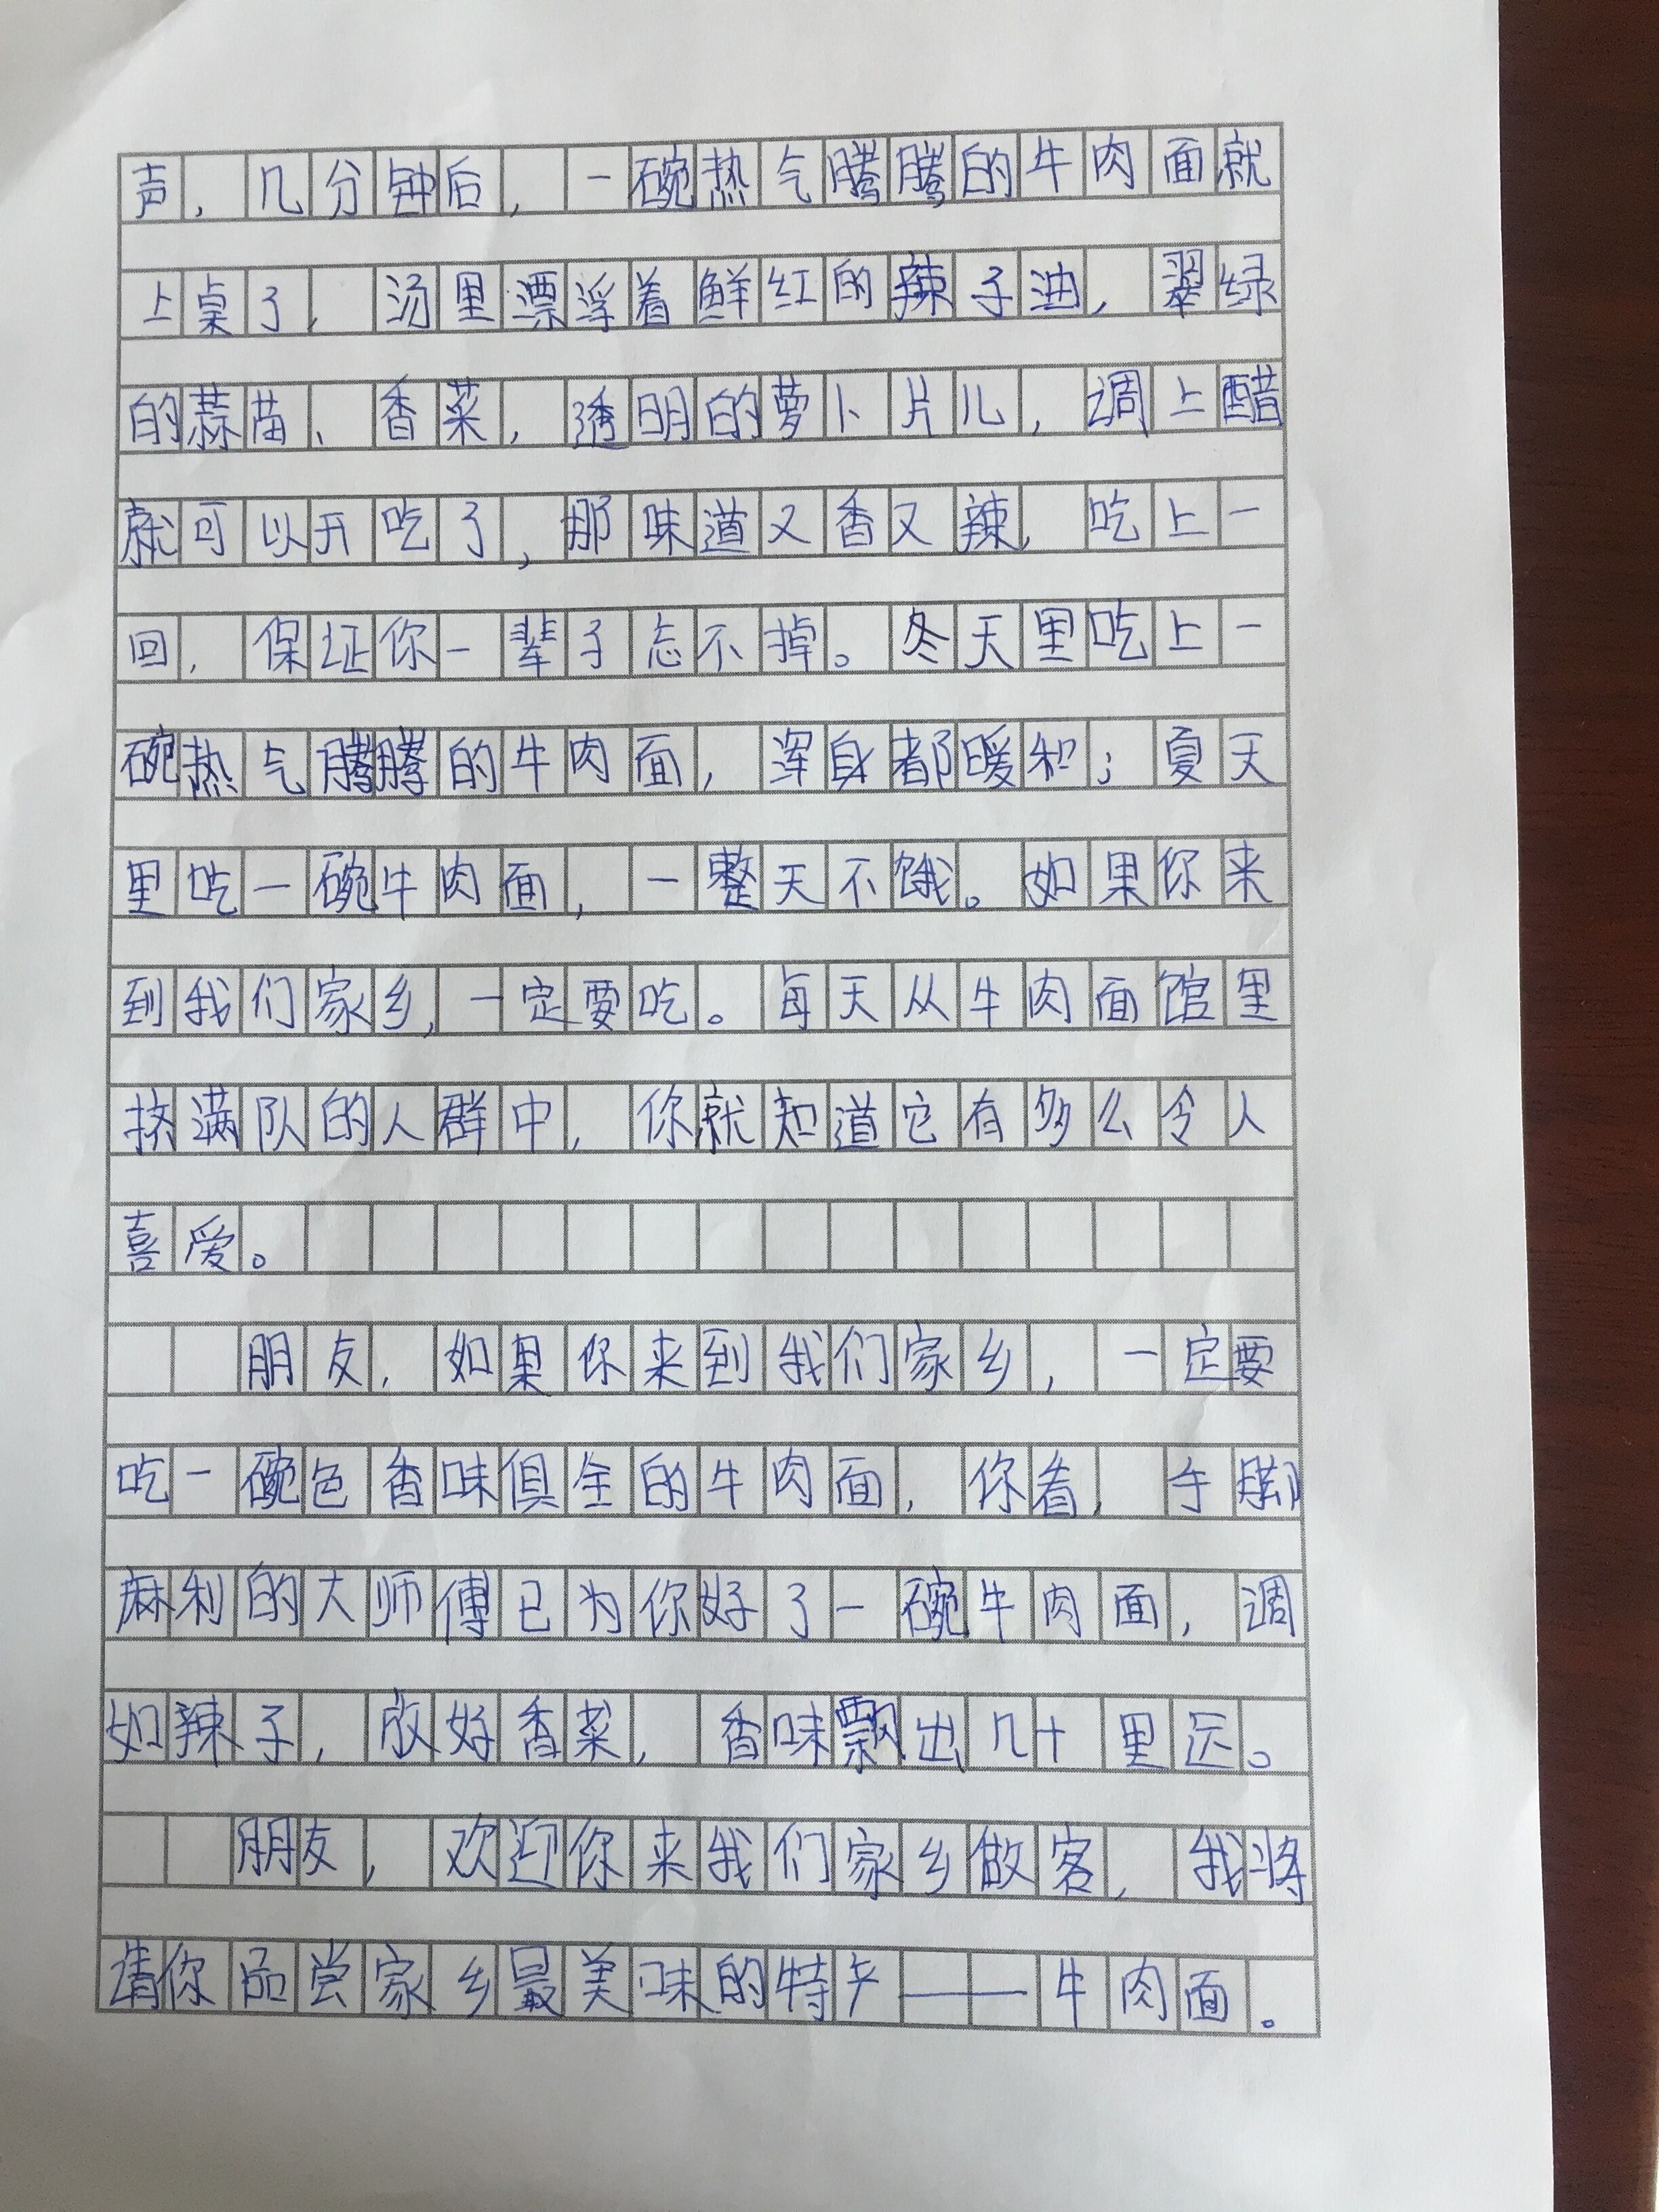 声，几分钟后，一碗热气腾腾的牛肉面就
上桌了，汤里漂浮着鲜红的辣子油，翠绿
的蒜苗、香菜，透明的萝卜片儿，调上醋
就可以开吃了，那味道又香又辣，吃上一
回，保证你一辈子忘不掉。冬天里吃上一
碗热气腾腾的牛肉面，浑身都暖和；夏天
里吃一碗牛肉面，一整天不饿。如果你来
到我们家乡，一定要吃。每天从牛肉面馆里
挤满队的人群中，你就知道它有多么令人
喜爱。
朋友，如果你来到我们家乡，一定要
吃一碗色香味俱全的牛肉面，你看，手脚
麻利的大师傅已为你好了一碗牛肉面，调
如辣子，放好香菜，香味飘出几十里远。
朋友，欢迎你来我们家乡做客，我将
请你品尝家乡最美味的特产——牛肉面。